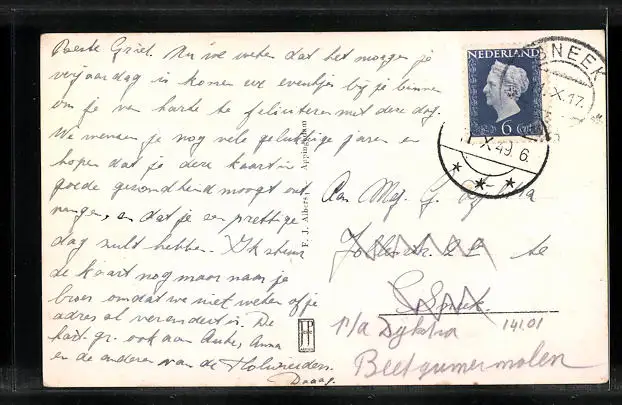 Beste Griet. Nu we weten dat het morgen je
verjaardag is komen we eventjes bij je binnen
om je van harte te feliciteren met deze dag.
We wensen je nog vele gelukkige jaren en
hopen dat je deze kaart in
goede gezondheid moogt ont
vangen, en dat je een prettige
dag zult hebben. Ik stuur
de kaart nog maar naar je
broer omdat we niet weten of je
adres al veranderd is. De
hart. gr. ook aan Auke, Anna
en de anderen van de
Daaag.
F. J. Albers, Appingedam
JP
NEDERLAND
6 Cent
SNEEK
X.17.
X.49 6.
Aan Mej. G.
te
Sneek.
p/a Dijkstra
14101
Beetgumermolen